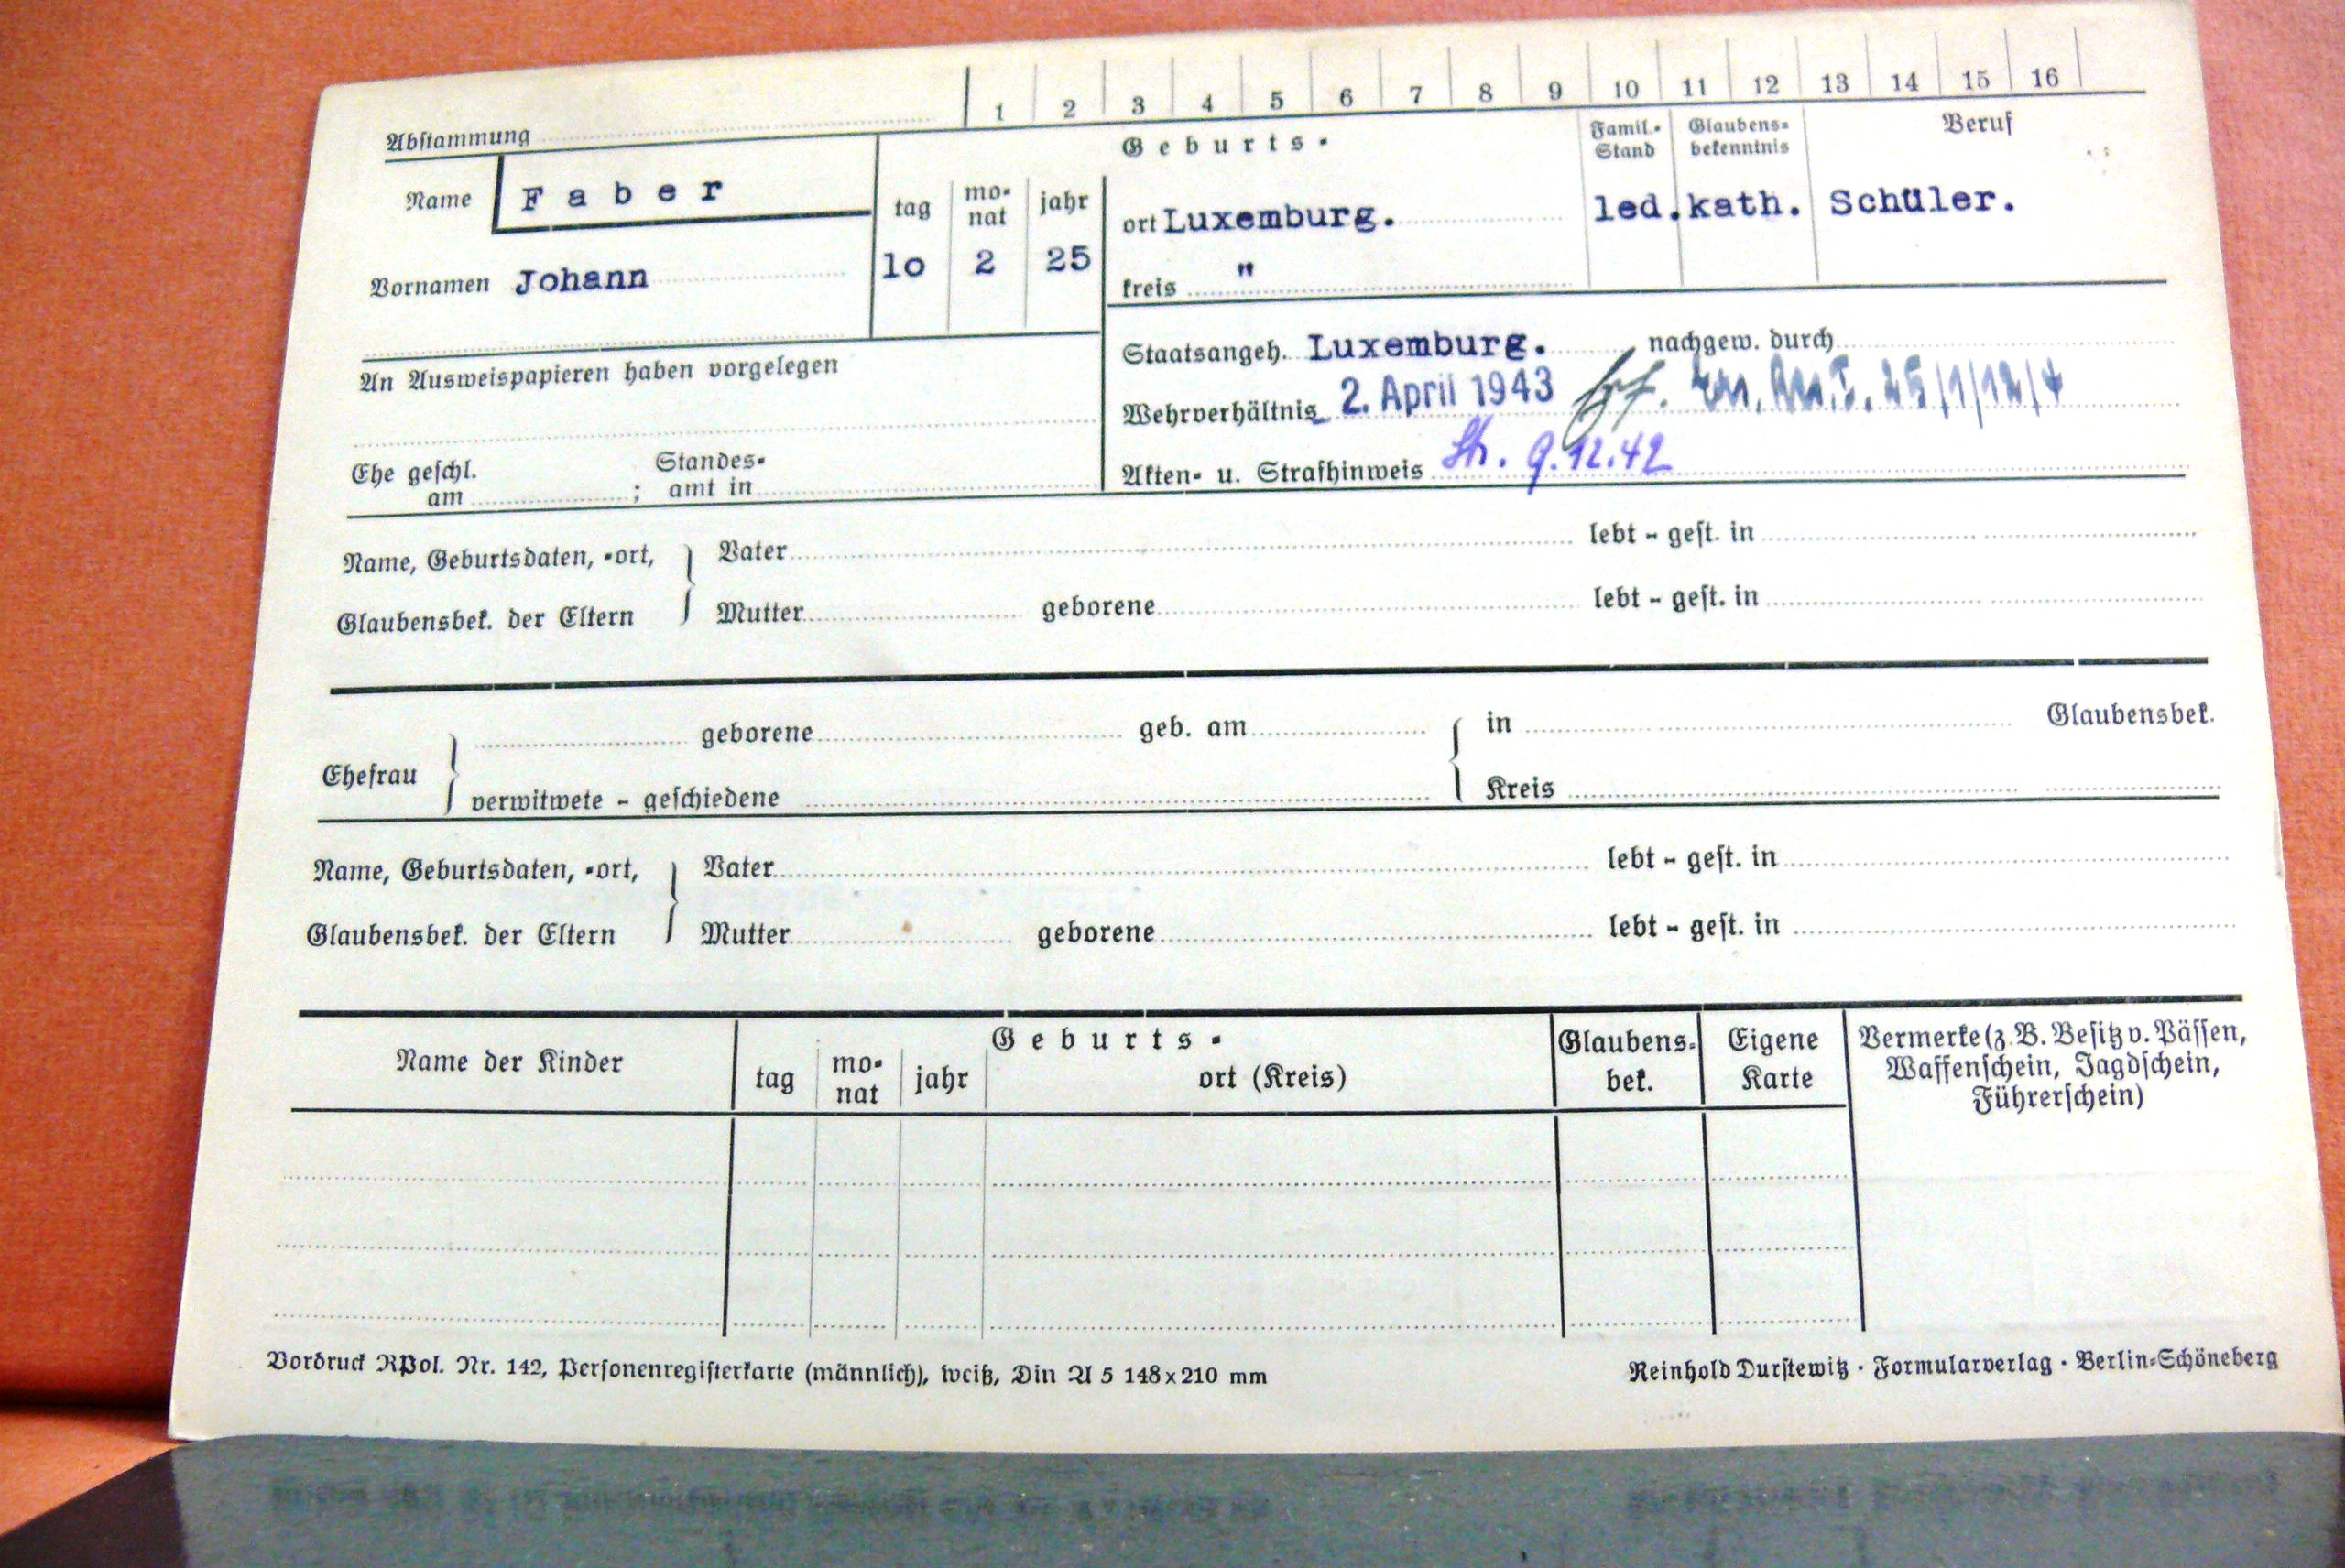 1 2 3 4 5 6 7 8 9 10 11 12 13 14 15 16
Abstammung
Name F a b e r
Vornamen Johann
Geburts-
tag mo-nat jahr
lo 2 25
ort Luxemburg.
kreis "
Famil.-Stand
led.
Glaubens-bekenntnis
kath.
Beruf
Schüler.
An Ausweispapieren haben vorgelegen
Staatsangeh. Luxemburg. nachgew. durch
Wehrverhältnis 2. April 1943
Akten- u. Strafhinweis 9.12.42
Ehe geschl. am ; Standes-amt in
Name, Geburtsdaten, -ort, Vater lebt - gest. in
Glaubensbek. der Eltern Mutter geborene lebt - gest. in
Ehefrau geborene geb. am in Glaubensbek.
verwitwete - geschiedene Kreis
Name, Geburtsdaten, -ort, Vater lebt - gest. in
Glaubensbek. der Eltern Mutter geborene lebt - gest. in
Name der Kinder
Geburts-
tag mo-nat jahr ort (Kreis)
Glaubens-bek.
Eigene Karte
Vermerke (z. B. Besitz v. Pässen,
Waffenschein, Jagdschein,
Führerschein)
Vordruck RPol. Nr. 142, Personenregisterkarte (männlich), weiß, Din A 5 148x210 mm
Reinhold Durstewitz · Formularverlag · Berlin-Schöneberg